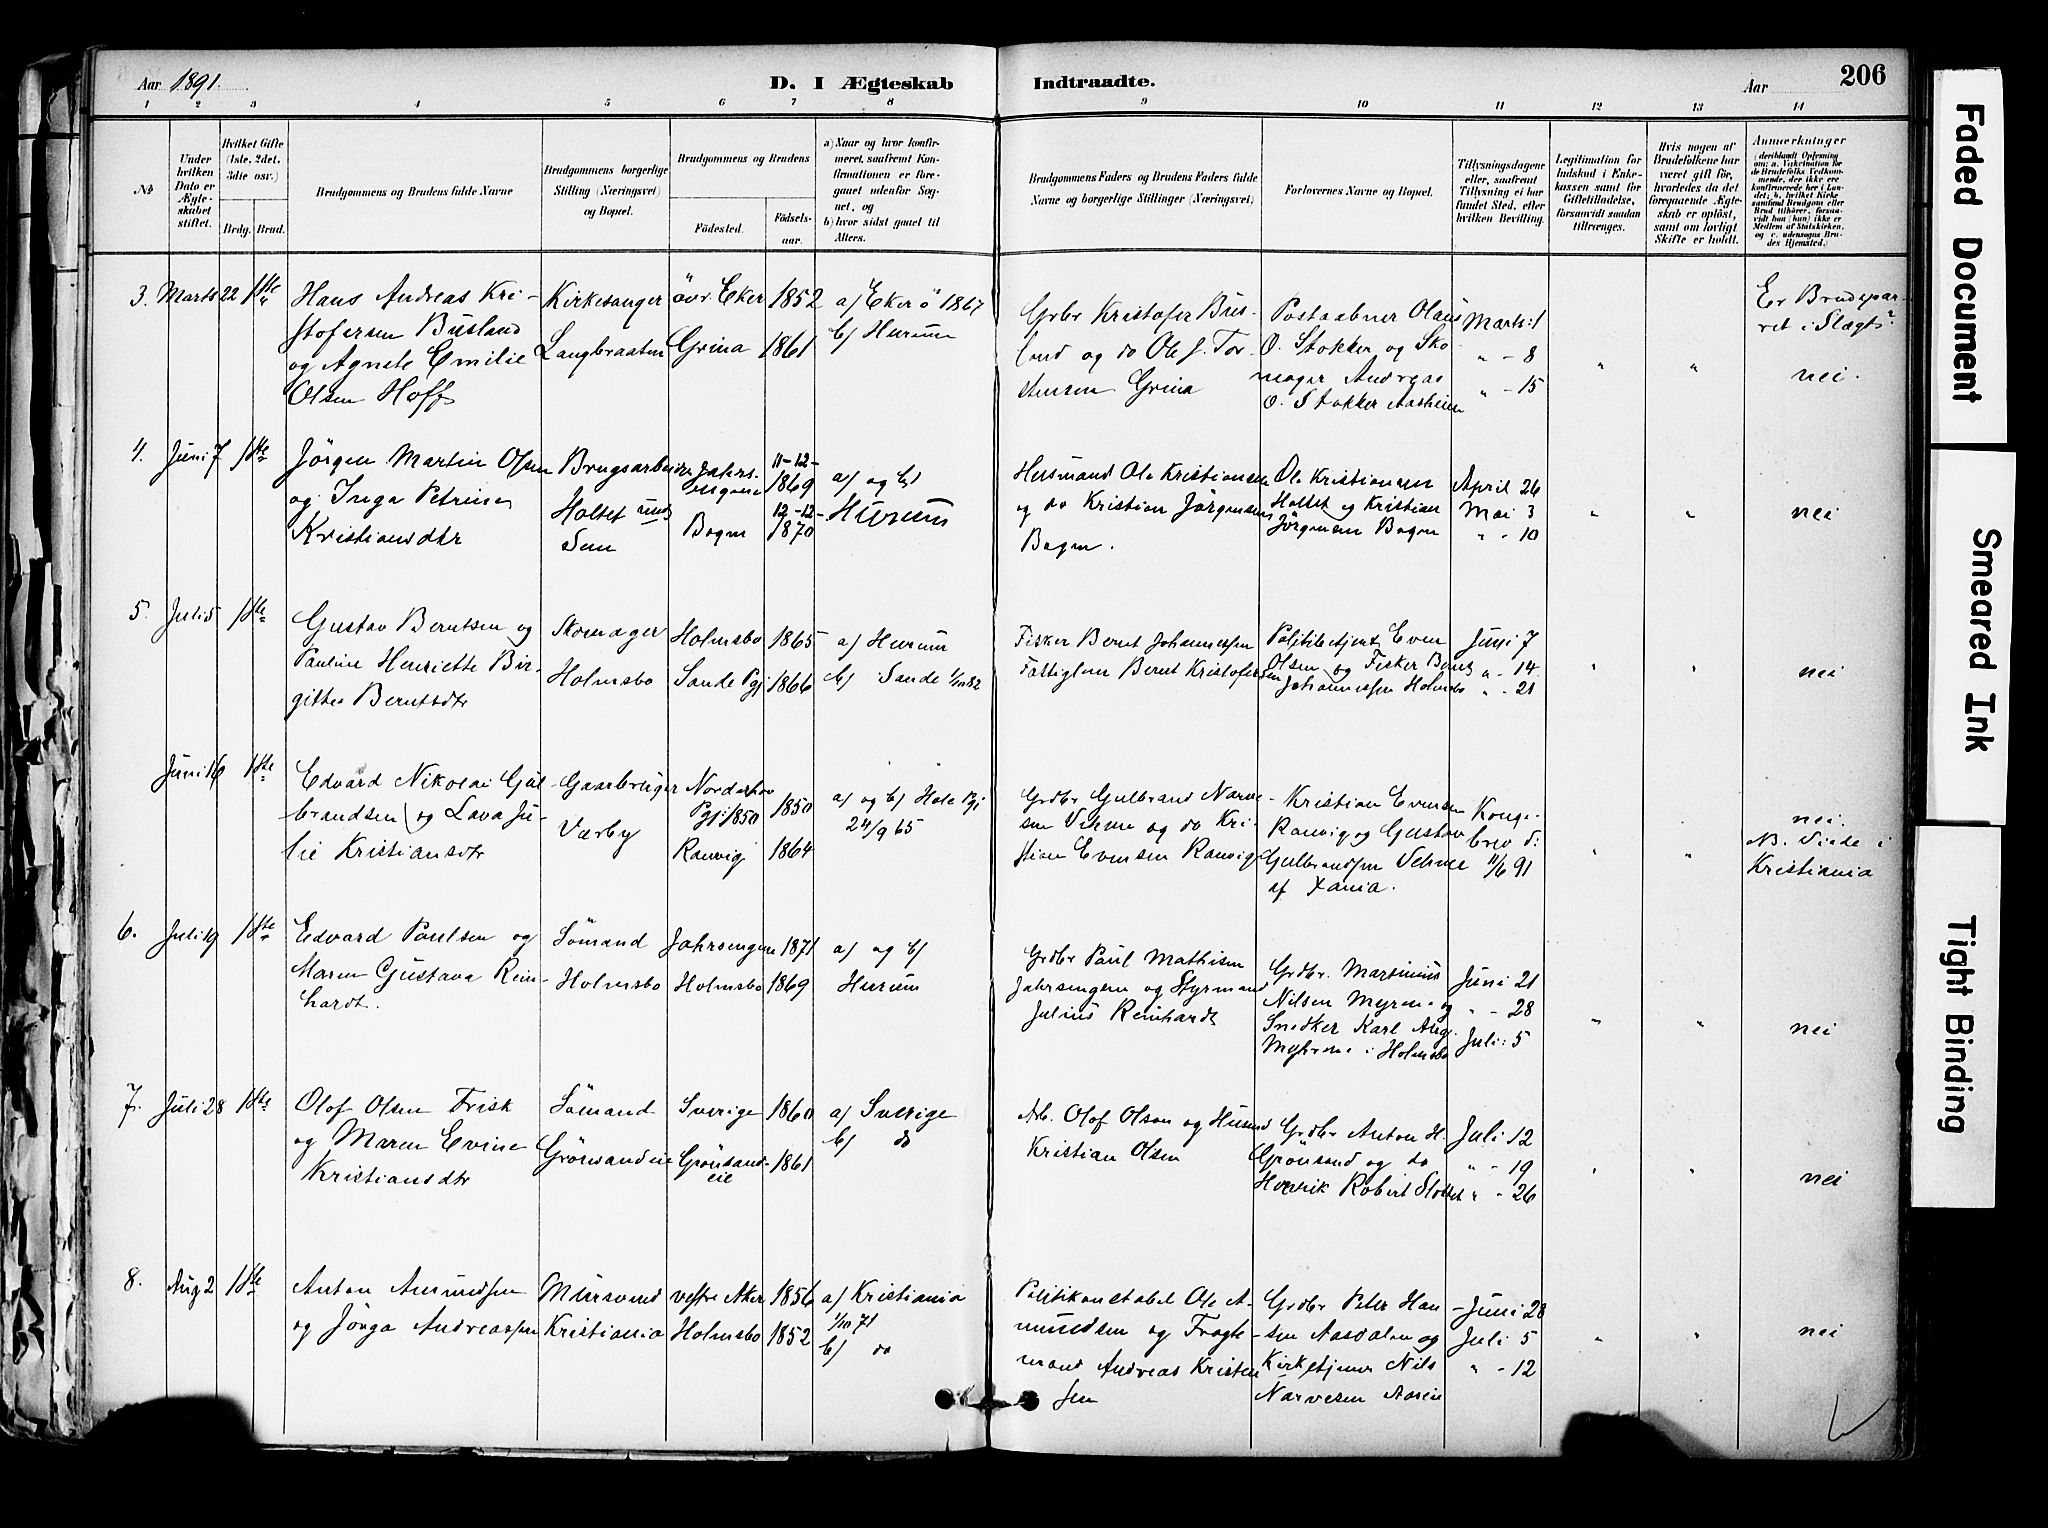 Aar 1891.
D. I Ægteskab Indtraadte.
Aar
206
1 2 3 4 5 6 7 8 9 10 11 12 13 14
No
Under hvilken Dato er Ægteskabet stiftet.
Hvilket Gifte (1ste, 2det, 3die osv.)
Brdg. Brud.
Brudgommens og Brudens fulde Navne
Brudgommens borgerlige Stilling (Næringsvei) og Bopæl.
Brudgommens og Brudens
Födested. Födselsaar.
a) Naar og hvor konfirmeret, saafremt Konfirmationen er foregaaet udenfor Sognet, og
b) hvor sidst gaaet til Alters.
Brudgommens Faders og Brudens Faders fulde Navne og borgerlige Stillinger (Næringsvei)
Forlovernes Navne og Bopæl.
Tillysningsdagene eller, saafremt Tillysning ei har fundet Sted, efter hvilken Bevilling.
Legitimation for Indskud i Enkekassen samt for Giftetilladelse, forsaavidt saadan tiltrænges.
Hvis nogen af Brudefolkene har været gift för, hvorledes da det foregaaende Ægteskab er oplöst, samt om lovligt Skifte er holdt.
Anmerkninger
3. Marts 22 1ste "
Hans Andreas Kri-
stofersen Busland
og Agnete Emilie
Olsen Hoff
Kirkesanger
Langbraaten
övr. Eker 1852
Grina 1861
a) Eker ö 1867
b) Hurum
Grbr Kristofer Bus-
land og do Ole J. Tor-
stensen Grina
Postaabner Olaus
O. Stokker og Sko-
mager Andreas
O. Stokker Aasheim
Marts: 1
" - 8
" - 15
"
"
Er Brudepar-
ret i Slægt?
nei.
4. Juni 7 1ste
Jörgen Martin Olsen
og Inga Petrine
Kristiansdtr
Brugsarbeider
Holtet und
Sem
Jahrs-
engene 11-12-1869
Bogen 12-12-1870
a) og b)
Hurum
Husmand Ole Kristiansen
og do Kristian Jörgensen
Bogen.
Ole Kristiansen
Holtet og Kristian
Jörgensen Bogen
April 26
Mai 3
" - 10
"
"
nei
5. Juli 5 1ste
Gustav Berntsen og
Pauline Henriette Bir-
gitte Berntsdtr
Skomager
Holmsbo
Holmsbo 1865
Sande Pgj 1866
a) Hurum
b) Sande 1/10 82
Fisker Bernt Johannessen
Fattiglem Bernt Kristofersen
Politibetjent Even
Olsen og Fisker Bernt
Johannessen Holmsbo
Juni 7
" - 14
" - 21
"
"
nei
Juni 16 1ste
Edvard Nikolai Gul-
brandsen og Lava Ju-
lie Kristiansdtr
Gaarbruger
Værby
Norderhov
Pgj: 1850 1850
Ranvig 1864
a) og b) Hole Pgj
24/9 65
Grdbr Gulbrand Narve-
sen Vehme og do Kri-
stian Evensen Ranvig
Kristian Evensen
Ranvig og Gustav
Gulbrandsen Vehme
af Xania.
Konge-
brev d:
11/6 91
"
"
nei.
N. Viede i
Kristiania
6. Juli 19 1ste
Edvard Paulsen og
Maren Gustava Rein-
hardt.
Sömand
Holmsbo
Jahrsengene 1871
Holmsbo 1869
a) og b)
Hurum
Grdbr Paul Mathisen
Jahrsengene og Styrmand
Julius Reinhardt
Grdbr. Martinius
Nilsen Myrene og
Snedker Karl Aug.
Myhrene i Holmsbo
Juni 21
" - 28
Juli: 5
"
"
nei
7. Juli 28 1ste
Olof Olsen Frisk
og Maren Evine
Kristiansdtr
Sömand
Grönsandeie
Sverige 1860
Grönsand-
eie 1861
a) Sverige
b) do
Arb. Olof Olson og Husmd
Kristian Olsen
Grdbr Anton H.
Grönsand og do
Henrik Robert Slottet
Juli 12
" - 19
" - 26
"
"
nei
8. Aug 2 1ste
Anton Amundsen
og Jörga Andreassen
Mursvend
Kristiania
vestre Aker 1856
Holmsbo 1852
a) Kristiania
1/10 71
b) do
Politikonstabel Ole A-
mundsen og Fragte-
mand Andreas Kristen
sen
Grdbr Peter Han-
sen Aasdalen og
Kirketjener Nils
Narvesen Aaseie
Juni 28
Juli 5
" - 12
"
"
nei
Faded Document
Smeared Ink
Tight Binding